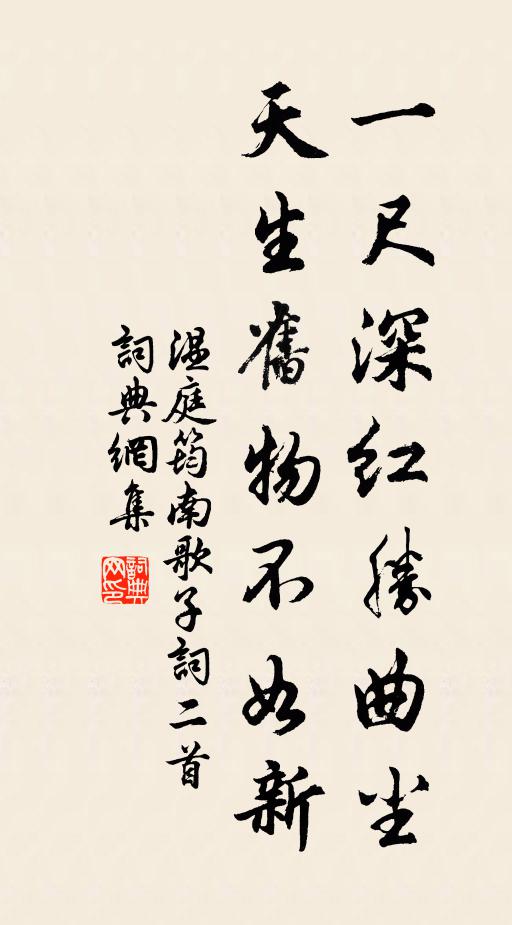 一尺深红勝曲尘
天生舊物不如新
温庭筠南歌子詞二首
詞典網集
詞典网印